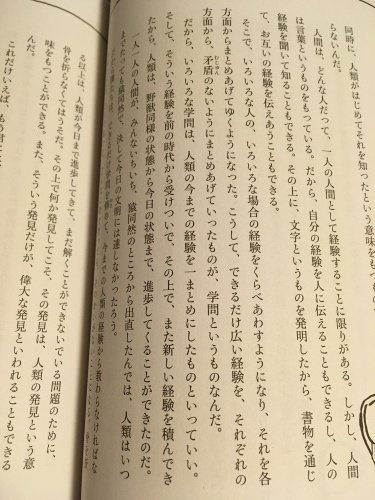 同時に、人類がはじめてそれを知ったという意味を
らないんだ。
人間は、どんな人だって、一人の人間として経験することに限りがある。しかし、人間
は言葉というものをもっている。だから、自分の経験を人に伝えることもできるし、人の
経験を聞いて知ることもできる。その上に、文字というものを発明したから、書物を通じ
て、お互いの経験を伝えあうこともできる。
そこで、いろいろな人の、いろいろな場合の経験をくらべあわすようになり、それを各
方面からまとめあげてゆくようになった。こうして、できるだけ広い経験を、それぞれの
方面から、矛盾のないようにまとめあげていったものが、学問というものなんだ。
だから、いろいろな学問は、人類の今までの経験を一まとめにしたものといっていい。
そして、そういう経験を前の時代から受けついで、その上で、また新しい経験を積んでき
たから、人類は、野獣同様の状態から今日の状態まで、進歩してくることができたのだ。
一人一人の人間が、みんないちいち、猿同然のところから出直したんでは、人類はいつ
までたっても猿同然で、決して今日の文明には達しなかったろう。
今までの人類の経験から教わらなければな
る以上は、人類が今日まで進歩してきて、まだ解くことができないでいる問題のために、
骨を折らなくてはうそだ。その上で何か発見してこそ、その発見は、人類の発見という意
味をもつことができる。また、そういう発見だけが、偉大な発見といわれることもできる
んだ。
これだけいえば、もう君には